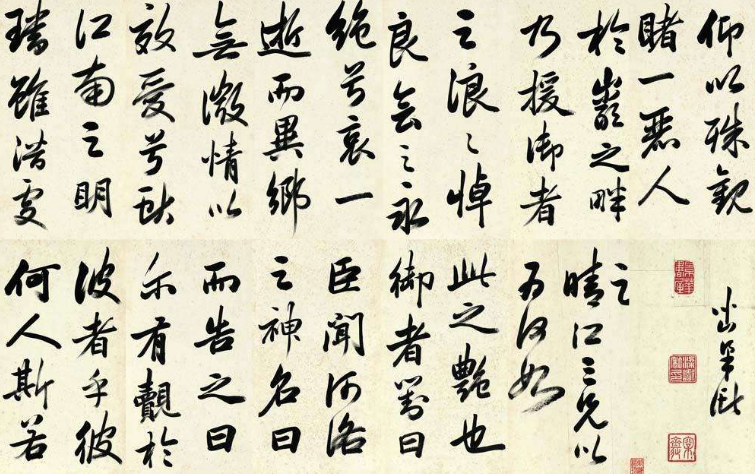 仰以殊觀
睹一麗人
於巖之畔
乃援御者
之浪〻悼
良會之永
絶兮哀一
逝而異鄉
無微情以
效愛兮獻
江南之明
璫雖潛處
之
晴江三兄以
為何如
此之艷也
御者對曰
臣聞河洛
之神名曰
而告之曰
尔有覿於
彼者乎彼
何人斯若